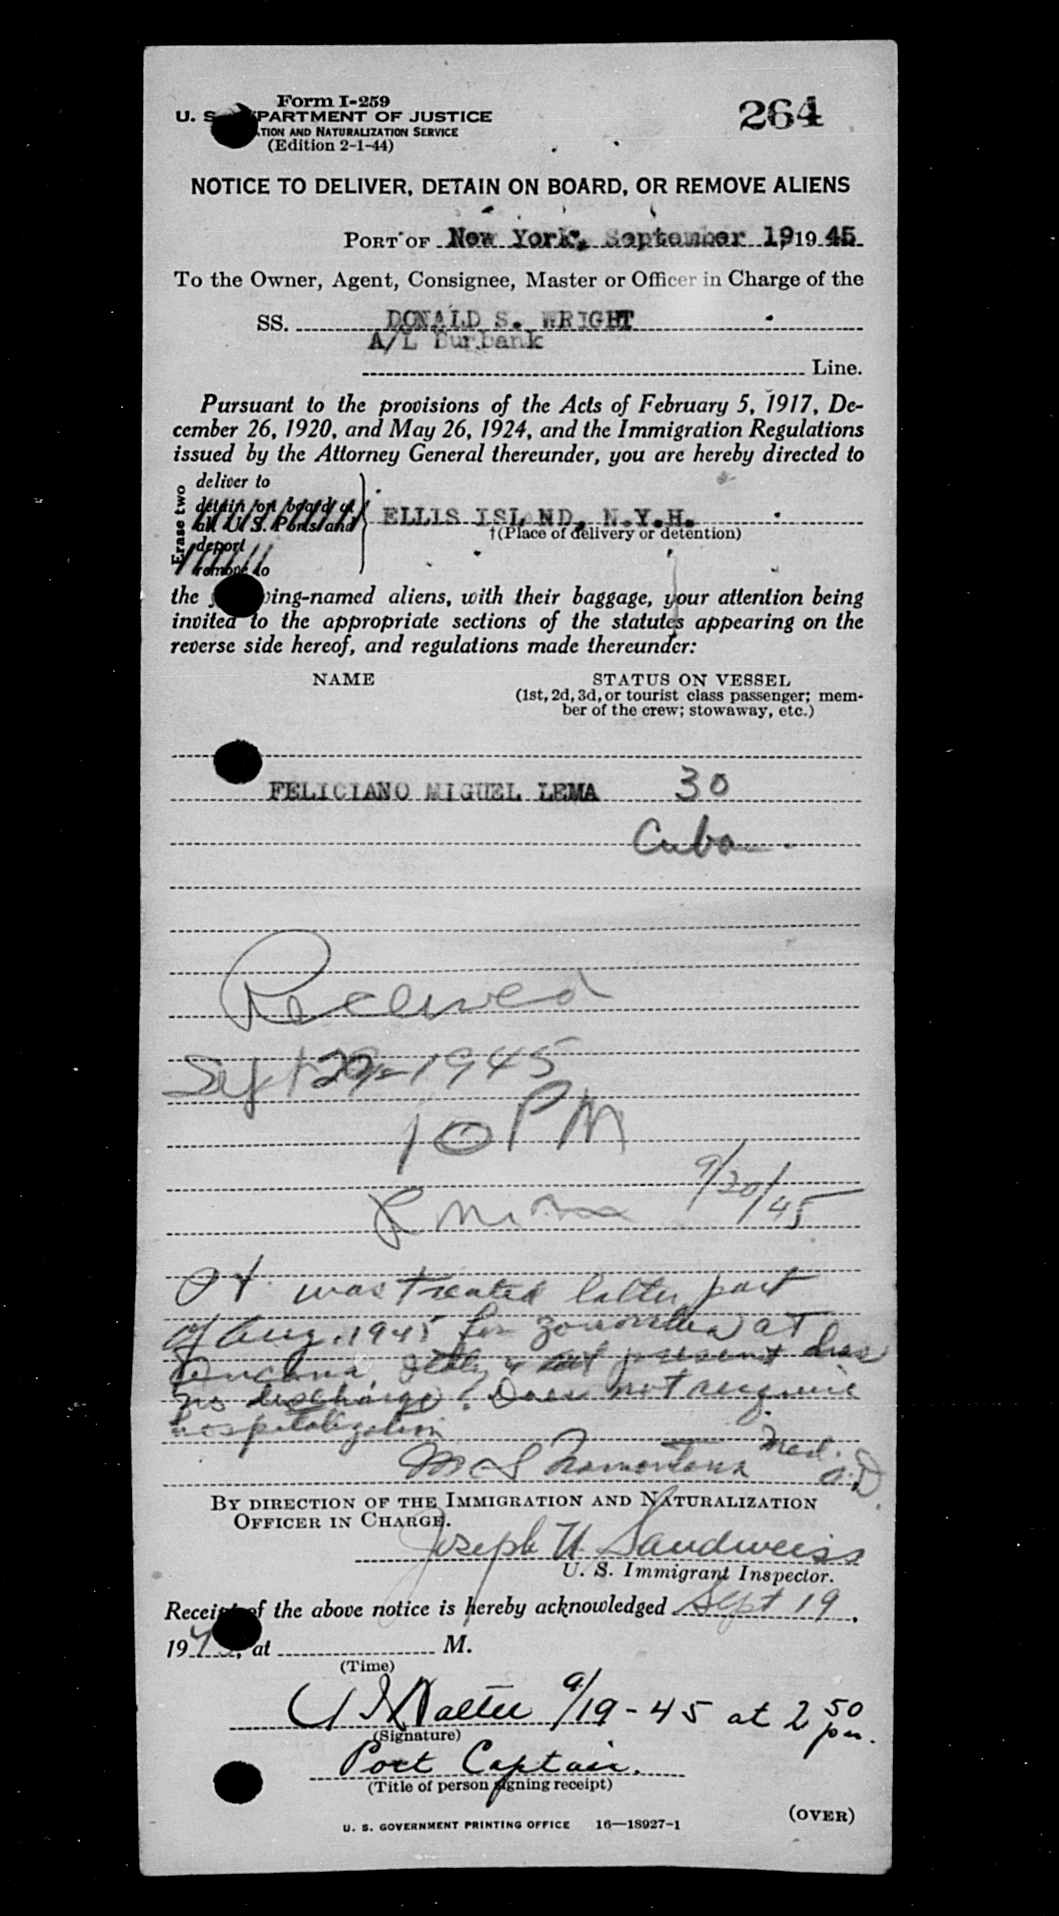 Form I-259
264
U. S. DEPARTMENT OF JUSTICE
TION AND NATURALIZATION SERVICE
(Edition 2-1-44)
NOTICE TO DELIVER, DETAIN ON BOARD, OR REMOVE ALIENS
PORT OF New York, September 19, 1945
To the Owner, Agent, Consignee, Master or Officer in Charge of the
SS. DONALD S. WRIGHT
A/L Burbank
Line.
Pursuant to the provisions of the Acts of February 5, 1917, De-
cember 26, 1920, and May 26, 1924, and the Immigration Regulations
issued by the Attorney General thereunder, you are hereby directed to
Erase two
deliver to
detain on board at
all U.S. Ports and
deport
remove to
ELLIS ISLAND, N.Y.H.
†(Place of delivery or detention)
the following-named aliens, with their baggage, your attention being
invited to the appropriate sections of the statutes appearing on the
reverse side hereof, and regulations made thereunder:
NAME STATUS ON VESSEL
(1st, 2d, 3d, or tourist class passenger; mem-
ber of the crew; stowaway, etc.)
FELICIANO MIGUEL LEMA 30
Cuba
Received
Sept 1945
10 PM
9/20/45
Pt was treated latter part
of Aug. 1945 for gonorrhea at
present has
no discharge. Does not require
hospitalization
Med.
BY DIRECTION OF THE IMMIGRATION AND NATURALIZATION
OFFICER IN CHARGE.
Joseph U Sandweiss
U. S. Immigrant Inspector.
Receipt of the above notice is hereby acknowledged Sept 19,
1945, at M.
(Time)
9/19-45 at 2 50 pm.
(Signature)
Port Captain.
(Title of person signing receipt)
(OVER)
U. S. GOVERNMENT PRINTING OFFICE 16—18927-1